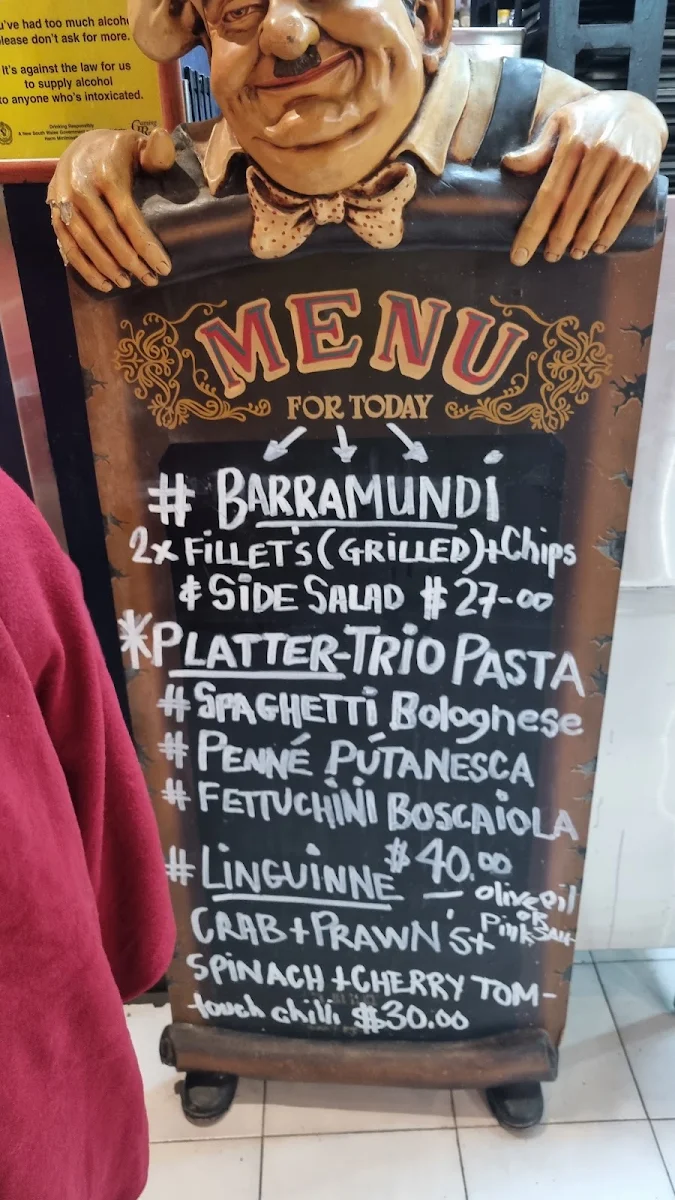 've had too much alcoh
lease don't ask for more.
It's against the law for us
to supply alcohol
to anyone who's intoxicated.
MENU
FOR TODAY
# BARRAMUNDi
2x FiLLET'S (GRILLED)+Chips
& SiDE SALAD $27-00
*PLATTER-TRiO PASTA
# SPAGHETTi Bolognese
# PENNÉ PÚTANESCA
# FETTUCHiNi BOSCAiOLA
$40.00
# LiNGUiNNE — olive oil
OR
CRAB+PRAWN'S+ Pink Sau
SPiNACH+CHERRY TOM-
touch chilli $30.00